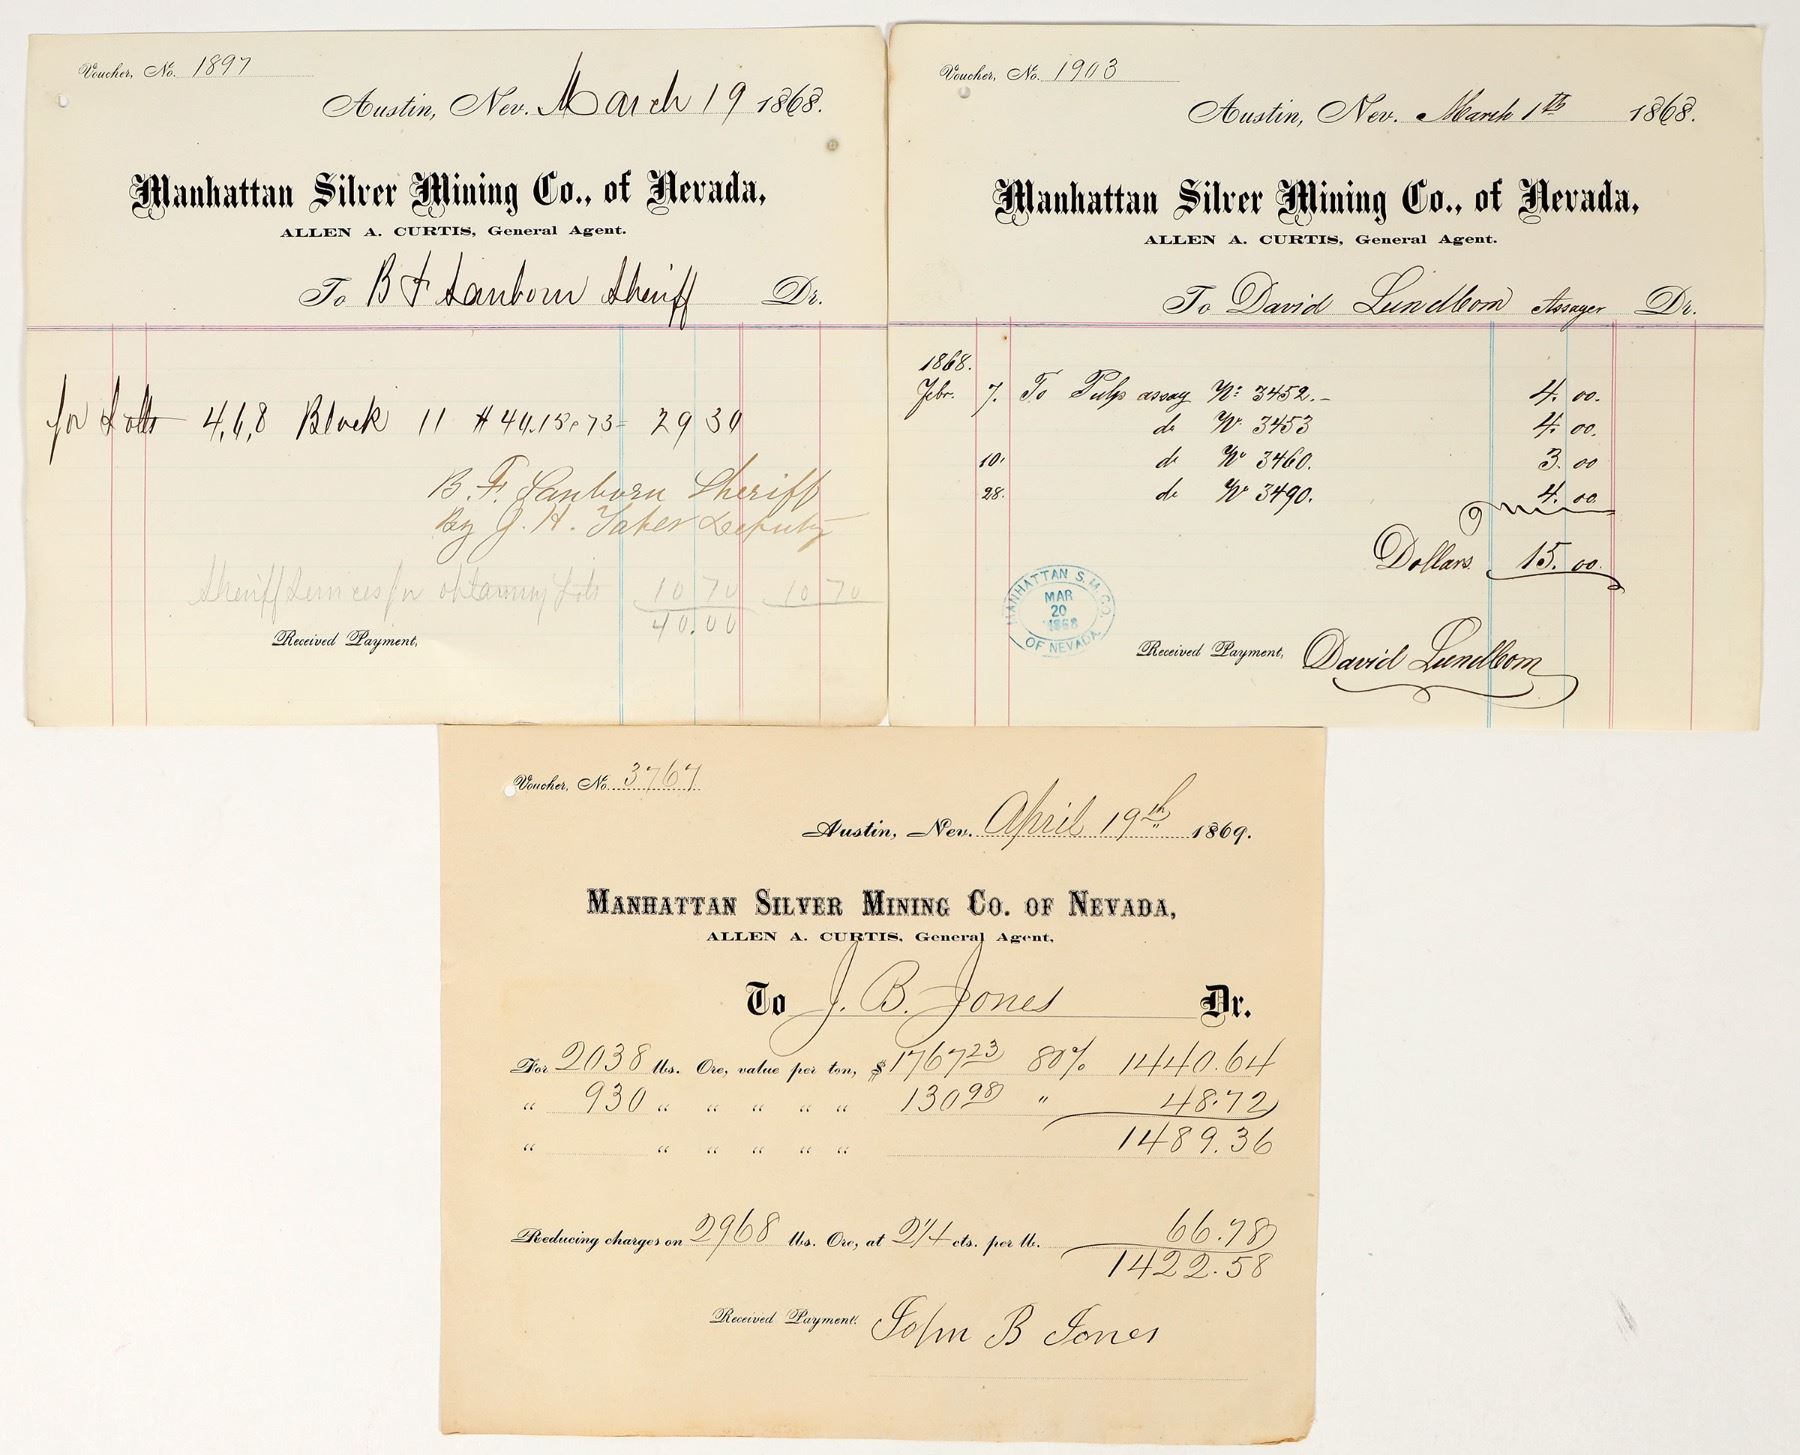 Voucher, No. 1897
Austin, Nev. March 19 1868.
Manhattan Silver Mining Co., of Nevada,
ALLEN A. CURTIS, General Agent.
To B F Sanborn Sheriff Dr.
for Lotts 4, 6, 8 Block 11 29 30
B. F. Sanborn Sheriff
By J. H. Deputy
Sheriff Services for obtaining Lots 10 70 10 70
40.00
Received Payment,
Voucher, No. 1903
Austin, Nev. March 1th 1868.
Manhattan Silver Mining Co., of Nevada,
ALLEN A. CURTIS, General Agent.
To David Lundbom Assayer Dr.
1868.
Febr. 7. To Pulp assay No: 3452.- 4. 00.
do No. 3453 4. 00.
10. do No 3460. 3. 00
28. do No 3490. 4. 00
Dollars. 15. 00.
MANHATTAN S. M. CO.
MAR
20
1868
OF NEVADA
Received Payment, David Lundbom
Voucher, No. 3767
Austin, Nev. April 19th 1869.
MANHATTAN SILVER MINING CO. OF NEVADA,
ALLEN A. CURTIS, General Agent,
To J. B. Jones Dr.
For 2038 lbs. Ore, value per ton, $1767 23 80% 1440.64
" 930 " " " " " 130 98 " 48.72
" " " " " " 1489.36
Reducing charges on 2968 lbs. Ore, at 2 1/4 cts. per lb. 66.78
1422.58
Received Payment. John B Jones